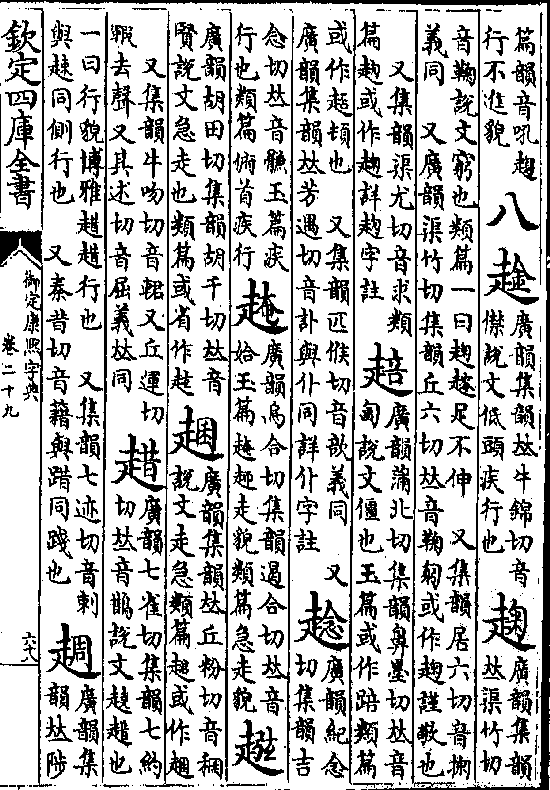 篇韻音吼趨
行不進貌
八
趛
廣韻集韻𠀤牛錦切音
㒈說文低頭疾行也
趜
廣韻集韻
𠀤渠竹切
音鞠說文窮也類篇一曰趜趚足不伸　又集韻居六切音掬
義同　又廣韻渠竹切集韻丘六切𠀤音鞠匑或作趜謹敬也
又集韻渠尤切音求類
篇趜或作詳趜字註
䞳
廣韻蒲北切集韻鼻墨切𠀤音
匐說文僵也玉篇或作踣類篇
或作頓也　又集韻匹候切音義同　又
廣韻集韻𠀤芳遇切音訃與仆同詳仆字註
趝
廣韻紀念
切集韻吉
念切𠀤音玉篇疾
行也類篇俯首疾行
廣韻烏合切集韻遏合切𠀤音
姶玉篇走貌類篇急走貌
廣韻胡田切集韻胡千切𠀤音
賢說文急走也類篇或省作
廣韻集韻𠀤丘粉切音稇
說文走急類篇或作
又集韻牛吻切音齳又丘運切
去聲又其述切音屈義𠀤同
趞
廣韻七雀切集韻七約
切𠀤音鵲說文趬趞也
一曰行貌博雅趞趞行也　又集韻七迹切音刺
與趚同側行也　又秦昔切音藉與踖同踐也
廣韻集
韻𠀤陟
欽定四庫全書
御定康熙字典
卷二十九
六十八